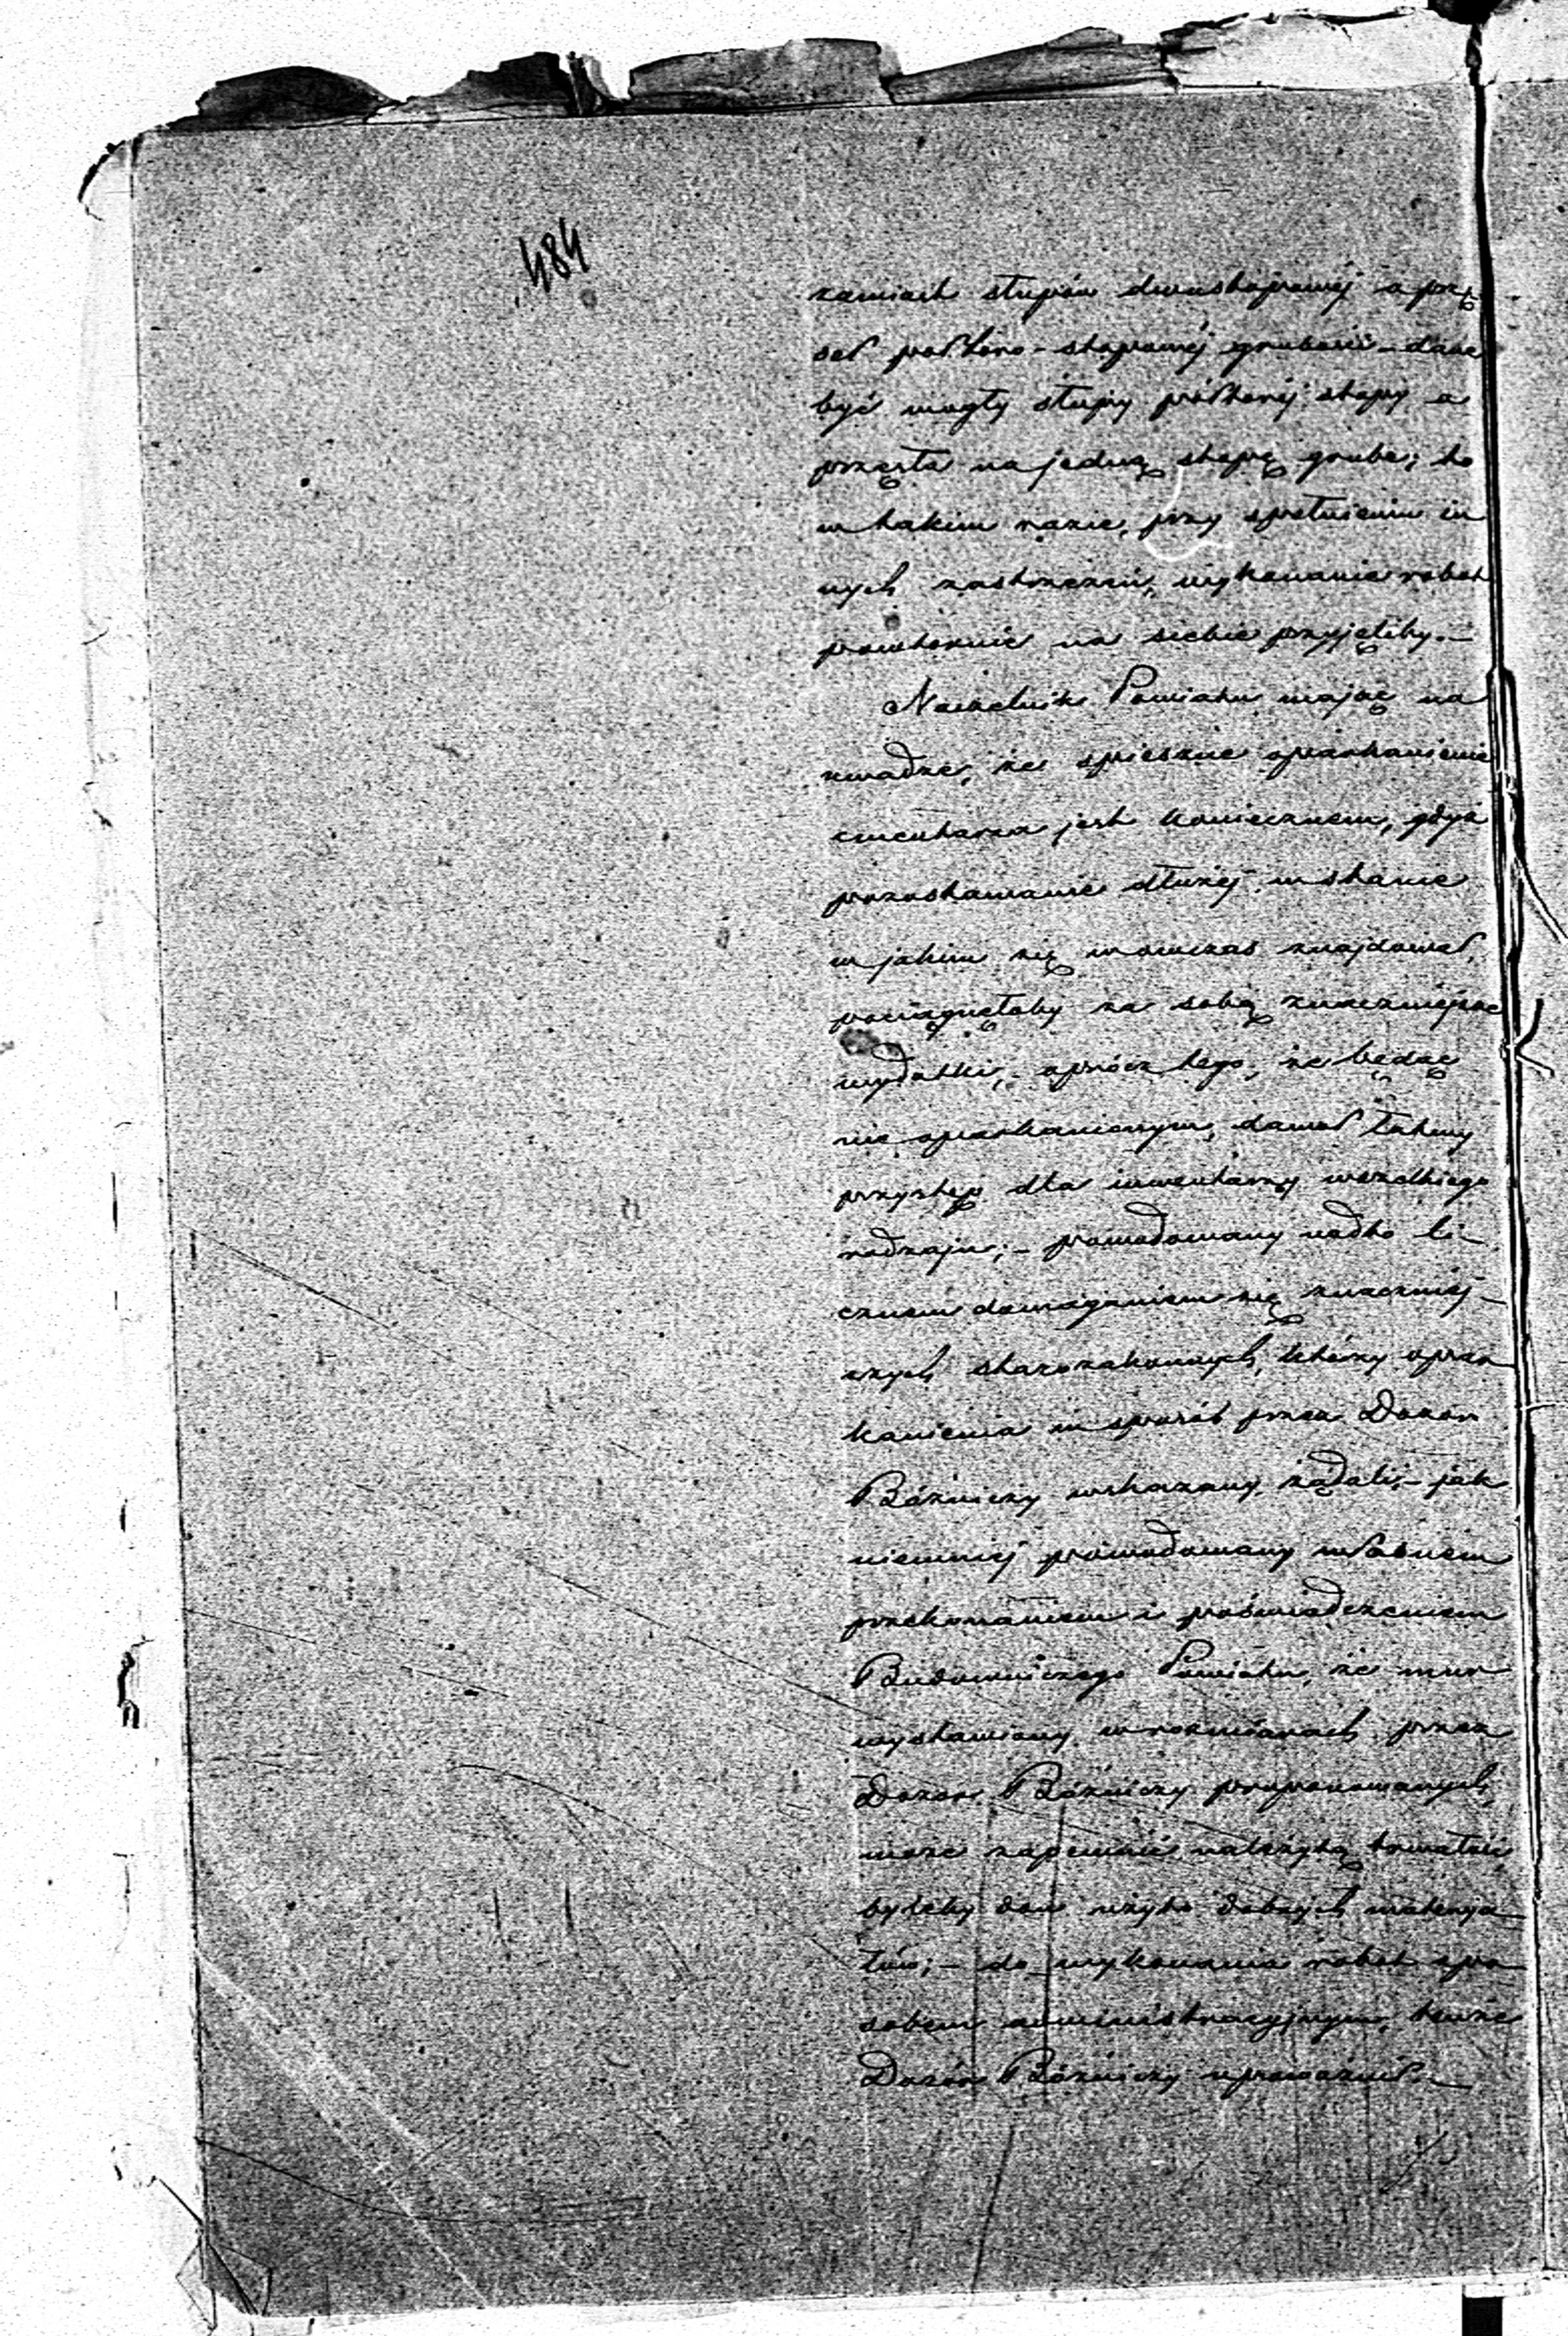 484
zamiast słupów dwustopowéj a przę
seł półtoro-stopowéj grubości – dane
być mogły słupy półtoréj stopy a
przęsła na jedną stopę grube; to
w takim razie, przy spełnieniu in
nych zastrzeżeń, wykonanie robót
powtórnie na siebie przyjęliby. –
Naczelnik Powiatu mając na
uwadze, że spieszne oparkanienie
cmentarza jest koniecznem, gdyż
pozostawanie dłużéj w stanie
w jakim się wówczas znajdował,
pociągnęłoby za sobą znaczniejsze
wydatki, – oprócz tego, że będąc
nie oparkanionym, dawał łatwy
przystęp dla inwentarzy wszelkiego
rodzaju; – powodowany nadto li-
cznem domaganiem się znaczniej-
szych starozakonnych, którzy opar
kanienia w sposób przez Dozór
Bóżniczy wskazany, żądali, – jak
niemniej powodowany własnem
przekonaniem i poświadczeniem
Budowniczego Powiatu, że mur
wystawiony w rozmiarach przez
Dozór Bóżniczy proponowanych,
może zapewnić należytą trwałość,
byleby doń użyto dobrych materya
łów; – do wykonania robót spo
sobem administracyjnym, tenże
Dozór Bóżniczy upoważnił. –